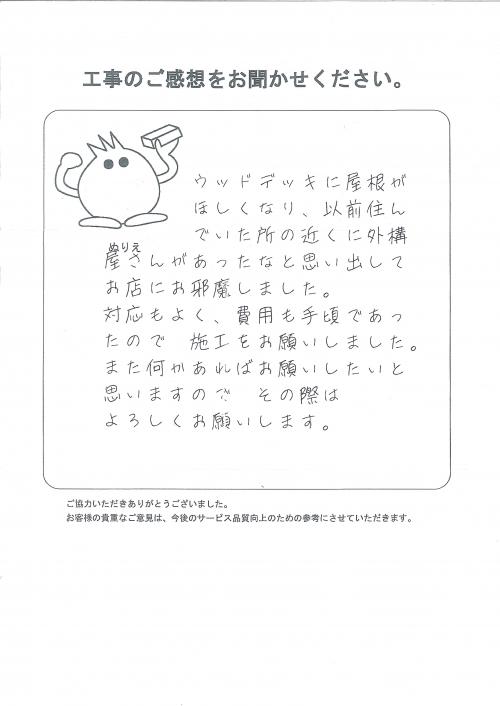 工事のご感想をお聞かせください。
ウッドデッキに屋根が
ほしくなり、以前住ん
でいた所の近くに外構
ぬりえ
屋さんがあったなと思い出して
お店にお邪魔しました。
対応もよく、費用も手頃であっ
たので 施工をお願いしました。
また何かあればお願いしたいと
思いますので その際は
よろしくお願いします。
ご協力いただきありがとうございました。
お客様の貴重なご意見は、今後のサービス品質向上のための参考にさせていただきます。